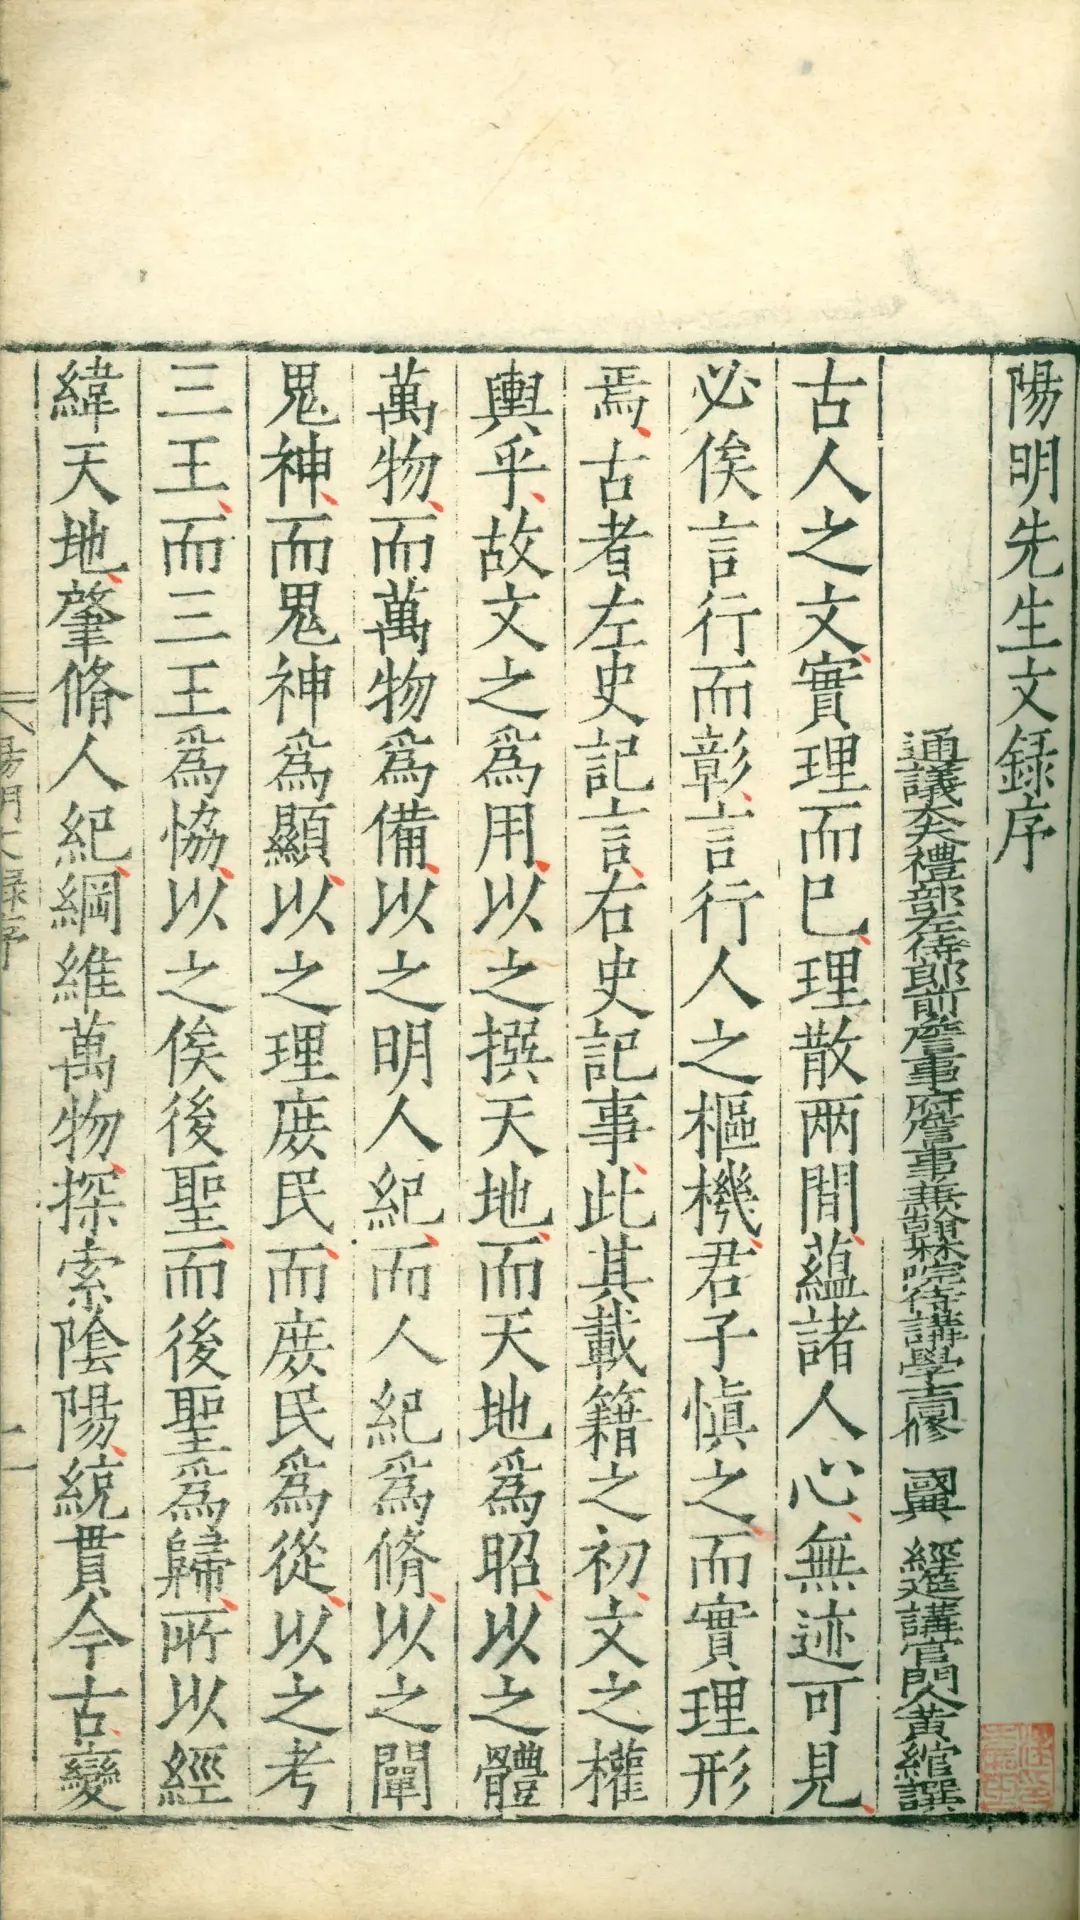 陽明先生文録序
通議大夫禮部左侍郎前詹事府詹事兼翰林院侍講學士同修 國典 經筵講官門人黃綰譔
古人之文實理而巳理散兩間蘊諸人心無迹可見
必俟言行而彰言行人之樞機君子慎之而實理形
焉古者左史記言右史記事此其載籍之初文之權
輿乎故文之爲用以之撰天地而天地爲昭以之體
萬物而萬物爲備以之明人紀而人紀爲脩以之闡
鬼神而鬼神爲顯以之理庻民而庻民爲從以之考
三王而三王爲恊以之俟後聖而後聖爲歸所以經
緯天地肇脩人紀綱維萬物探索隂陽統貫今古變
陽明文録序
一